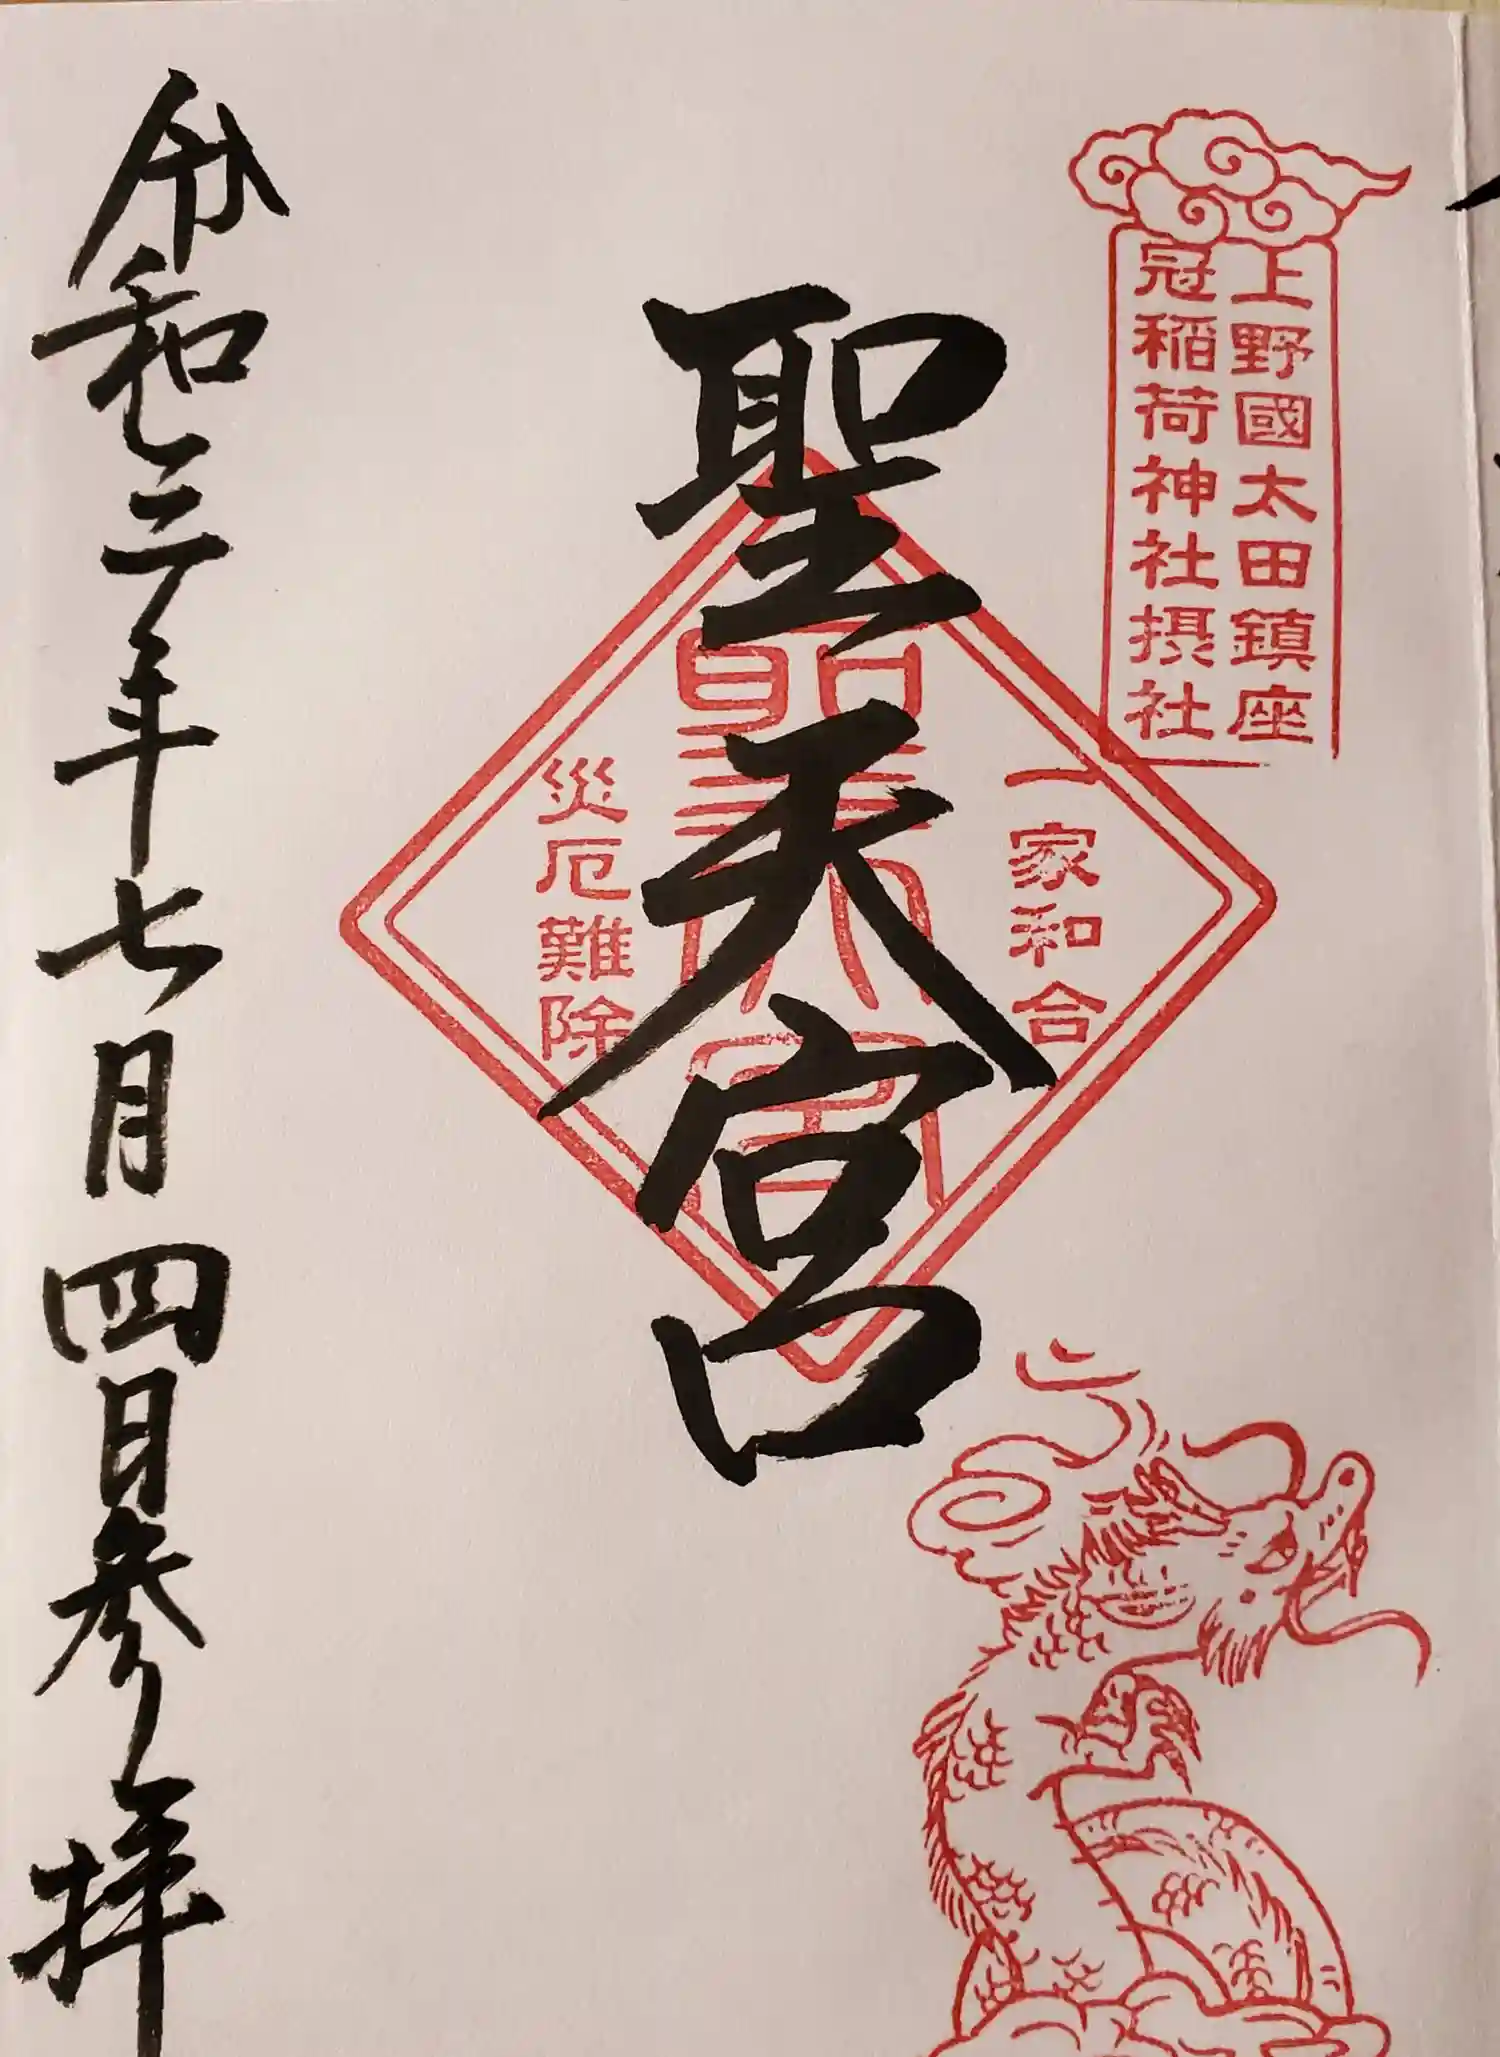 上野國太田鎮座
冠稲荷神社摂社
一家和合
聖天宮
聖天宮
災厄難除
令和二年七月四日参拝